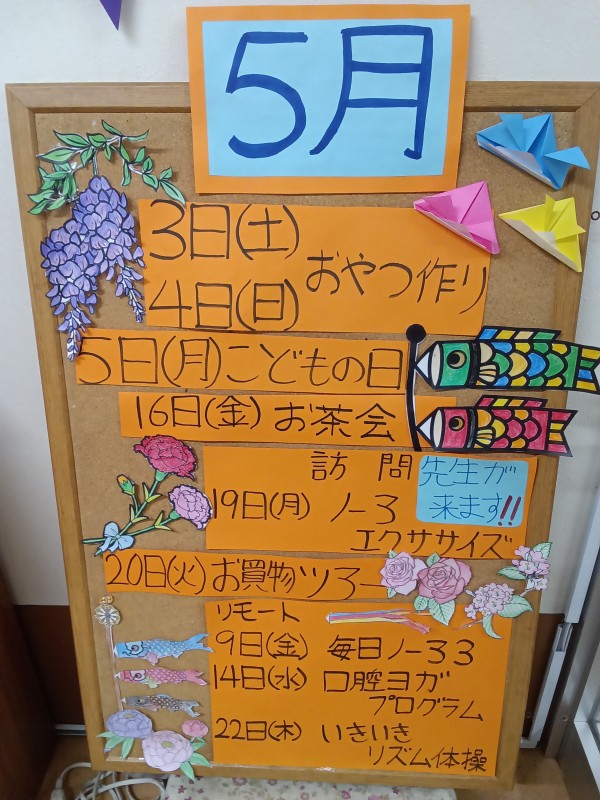 5月
3日(土)
4日(日)
おやつ作り
5日(月)こどもの日
16日(金)お茶会
訪問
先生が
来ます!!
19日(月) ノーろ
エクササイズ
20日(火)お買物ツアー
リモート
9日(金) 毎日ノーろろ
14日(水) 口腔ヨガ
プログラム
22日(木) いきいき
リズム体操